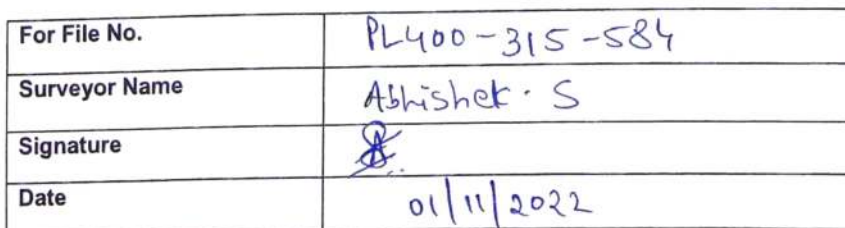 For File No. PL400-315-584
Surveyor Name Abhishek. S
Signature
Date 01/11/2022